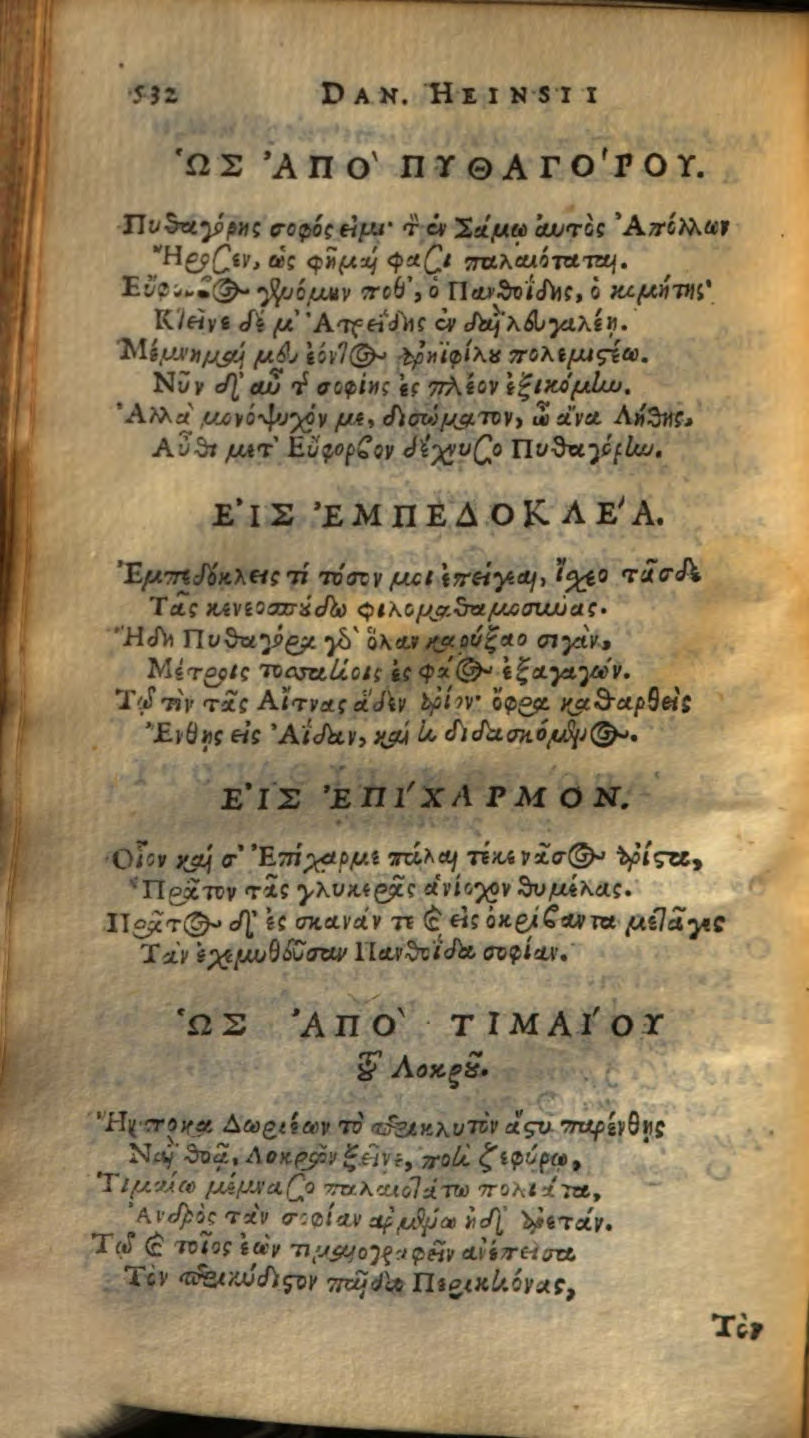 532 DAN. HEINSII
ὩΣ ἈΠῸ ΠΥΘΑΓΌΡΟΥ.
Πυθαγόρης σοφός εἰμι· τ̀ ἐν Σάμῳ αὐτὸς Ἀπόλλων
Ἤροζεν, ὡς φῆμαι φαζὶ παλαιόταται.
γενόμην ποθ', ὁ Πανθοίδης, ὁ κομήτης·
Κτεῖνε δέ μ' Ἀτρείδης ἐν δαῒ λευγαλέῃ.
Μέμνημαι μὲν ἐόντος ἀρηϊφίλου πολεμιστέω.
Νῦν δ' αὖ τ̃ σοφίης ἐς πλέον ἐξικόμην.
Ἀλλὰ μονόψυχόν με, δισώματον, ὦ ἄνα Λήθης,
Αὖθι μετ' Εὔφορβον δέχνυσο Πυθαγόρην.
ΕἸΣ ἘΜΠΕΔΟΚΛΈΑ.
Ἐμπεδόκλεις τί τόσον μοι ἐπείγεαι, ἴσχεο τᾶσδε
Τᾶς κενεοσπούδω φιλομαθαμοσύνας.
Ἤδη Πυθαγόρα γδ' ὅλαν καρύξαο σιγὰν,
Μέτροις τοσσατίοις ἐς φάος ἐξαγαγών.
Τῷ τὴν τᾶς Αἴτνας ἅδεν ἀρίον· ὄφρα καθαρθεὶς
Ἔνθῃς εἰς Ἀΐδαν, καὶ ἐν διδασκόμενος.
ΕἸΣ ἘΠΊΧΑΡΜΟΝ.
Οἷον καὶ σ' Ἐπίχαρμε πάλαι τέκε νᾶσος ἀρίστα,
Πρᾶτον τᾶς γλυκερᾶς ἁνίοχον θυμέλας.
Πρᾶτος δ' ἐς σκανάν τε καὶ εἰς ὀκρίβαντα μετᾶγες
Τὰν ἐχεμυθεῦσαν Πανθοΐδα σοφίαν.
ὩΣ ἈΠῸ ΤΙΜΑΊΟΥ
τοῦ Λοκροῦ.
Ἤν ποκα Δωριέων τὸ περικλυτὸν ἄστυ παρένθῃς
Ναῒ θοᾷ, Λοκρῶν ξεῖνε, ποτὶ ζεφύρῳ,
Τιμαίω μέμνασο παλαιοτάτω πολιάτα,
Ἀνδρὸς τὰν σοφίαν ἀρμένω ἠδ' ἀρετάν.
Τῷ καὶ τοῖος ἐὼν ἀνέπεισα
Τὸν περικύδιστον παῖδα Περικτιόνας,
Τὸν